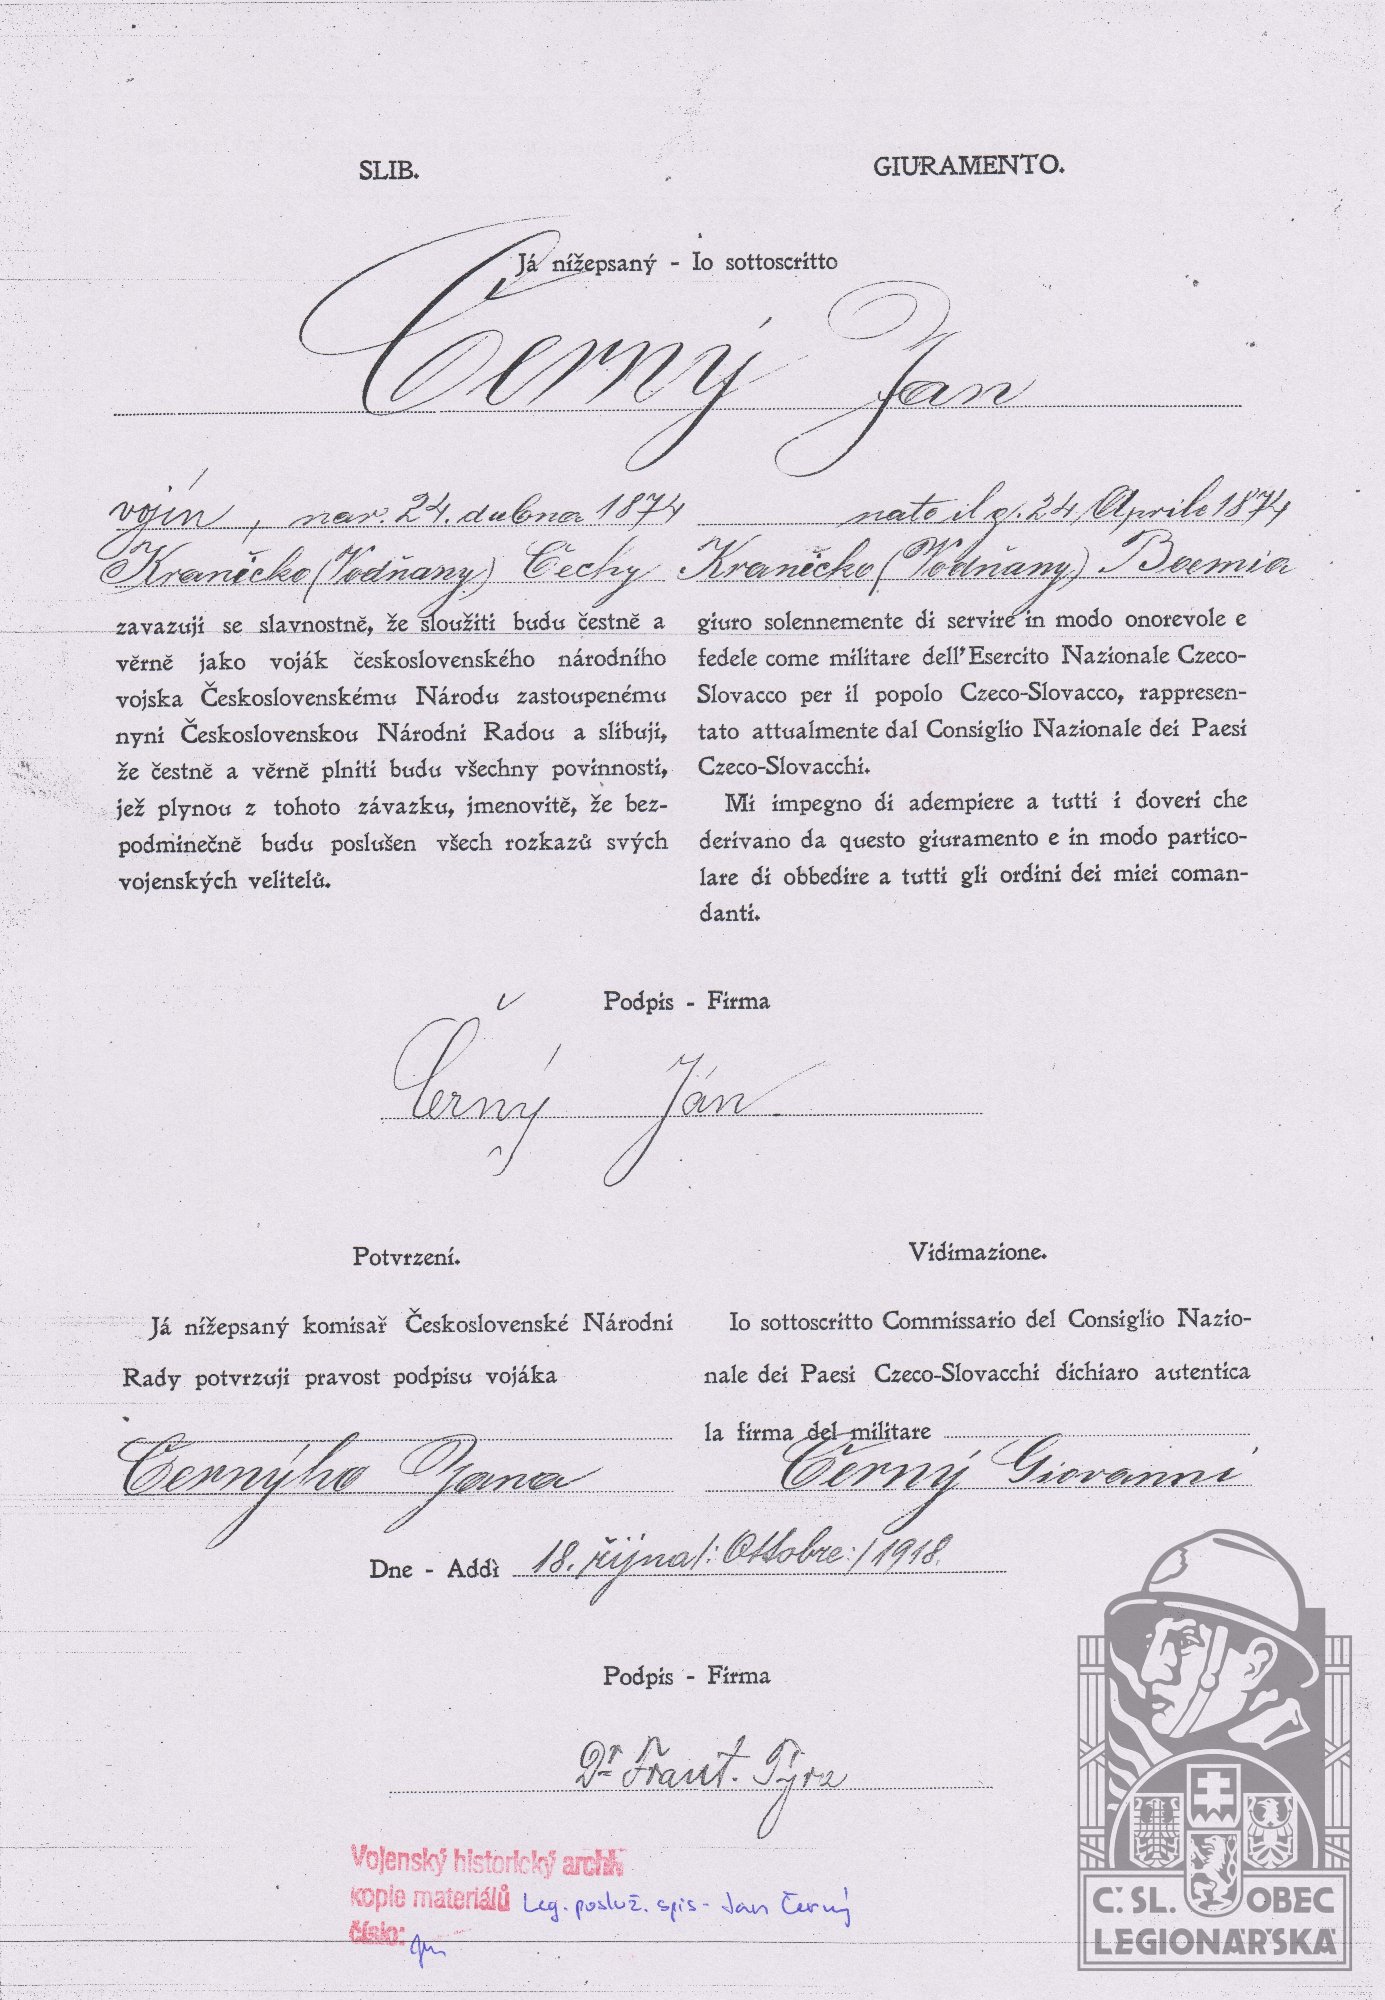 SLIB.
GIURAMENTO.
Já nížepsaný - Io sottoscritto
Černý Jan
vojín, nar. 24. dubna 1874
Kraničko (Vodňany) Čechy
zavazuji se slavnostně, že sloužiti budu čestně a
věrně jako voják československého národního
vojska Československému Národu zastoupenému
nyni Československou Národni Radou a slibuji,
že čestně a věrně plniti budu všechny povinnosti,
jež plynou z tohoto závazku, jmenovitě, že bez-
podminečně budu poslušen všech rozkazů svých
vojenských velitelů.
nato il g. 24 Aprile 1874
Kraničko (Vodňany) Boemia
giuro solennemente di servire in modo onorevole e
fedele come militare dell'Esercito Nazionale Czeco-
Slovacco per il popolo Czeco-Slovacco, rappresen-
tato attualmente dal Consiglio Nazionale dei Paesi
Czeco-Slovacchi.
Mi impegno di adempiere a tutti i doveri che
derivano da questo giuramento e in modo partico-
lare di obbedire a tutti gli ordini dei miei coman-
danti.
Podpis - Firma
Černý Ján.
Potvrzení.
Já nížepsaný komisař Československé Národni
Rady potvrzuji pravost podpisu vojáka
Černýho Jana
Vidimazione.
Io sottoscritto Commissario del Consiglio Nazio-
nale dei Paesi Czeco-Slovacchi dichiaro autentica
la firma del militare
Černý Giovanni
Dne - Addì 18. října /: Ottobre :/ 1918.
Podpis - Firma
Dr Frant. Týrz
Vojenský historický archiv
kopie materiálů Leg. posluž. spis - Jan Černý
číslo:
Č.SL. OBEC
LEGIONÁŘSKÁ